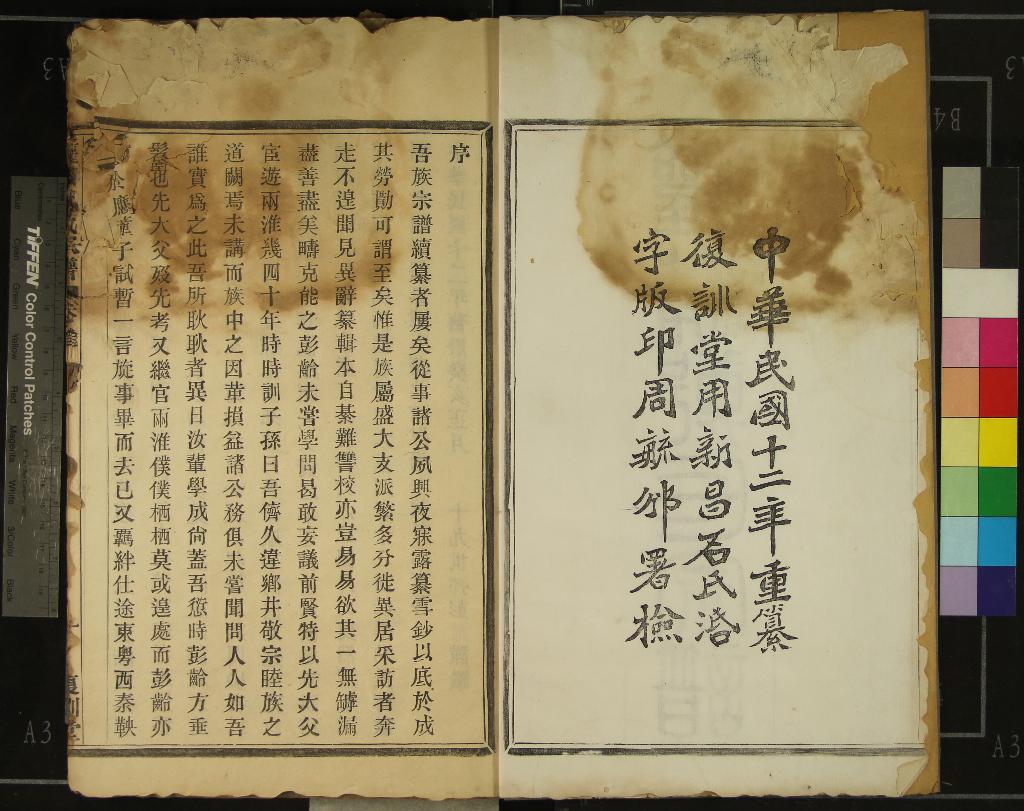 中華民國十二年重纂
復訓堂用新昌石氏活
字版印周毓邠署檢
序
吾族宗譜續纂者屢矣從事諸公夙興夜寐露纂雪鈔以底於成
其勞勩可謂至矣惟是族屬盛大支派繁多分徙異居采訪者奔
走不遑聞見異辭纂輯本自綦難讐校亦豈易易欲其一無罅漏
盡善盡美疇克能之彭齡未嘗學問曷敢妄議前賢特以先大父
宦遊兩淮幾四十年時時訓子孫曰吾儕久違鄉井敬宗睦族之
道闕焉未講而族中之因革損益諸公務俱未嘗聞問人人如吾
誰實爲之此吾所耿耿者異日汝輩學成尙蓋吾愆時彭齡方垂
髫也先大父及先考又繼官兩淮僕僕栖栖莫或遑處而彭齡亦
於應童子試暫一言旋事畢而去已又羈絆仕途東粵西秦鞅
復訓堂
TIFFEN Color Control Patches
Blue
Cyan
Green
Yellow
Red
Magenta
White
3/Color
Black
A3
A3
A3
A3
B4